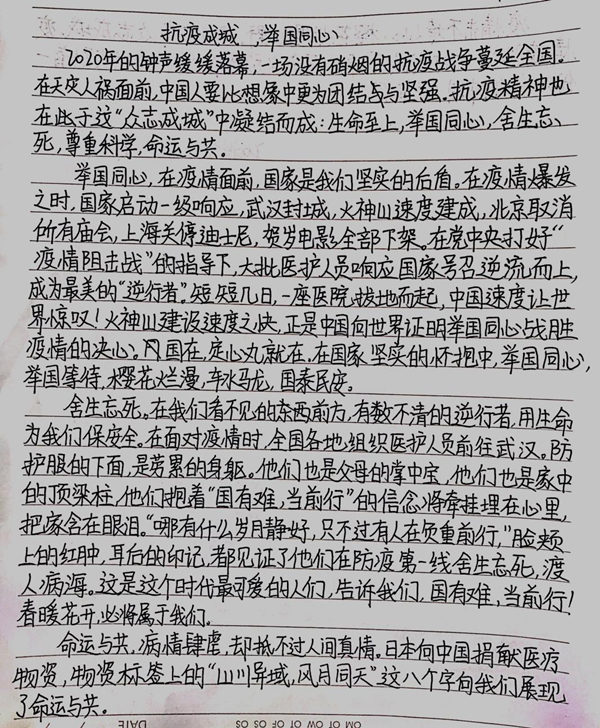 抗疫成城，举国同心
2020年的钟声缓缓落幕，一场没有硝烟的抗疫战争蔓延全国。
在天灾人祸面前，中国人要比想象中更为团结与坚强。抗疫精神也
在此于这“众志成城”中凝结而成：生命至上，举国同心，舍生忘
死，尊重科学，命运与共。
举国同心，在疫情面前，国家是我们坚实的后盾。在疫情爆发
之时，国家启动一级响应，武汉封城，火神山速度建成，北京取消
所有庙会，上海关停迪士尼，贺岁电影全部下架。在党中央打好“
疫情阻击战”的指导下，大批医护人员响应国家号召逆流而上，
成为最美的“逆行者”。短短几日，一座医院拔地而起，中国速度让世
界惊叹！火神山建设速度之快，正是中国向世界证明举国同心战胜
疫情的决心。国在，定心丸就在，在国家坚实的怀抱中，举国同心，
举国等待，樱花烂漫，车水马龙，国泰民安。
舍生忘死。在我们看不见的东西前方，有数不清的逆行者，用生命
为我们保安全。在面对疫情时，全国各地组织医护人员前往武汉。防
护服的下面，是劳累的身躯。他们也是父母的掌中宝，他们也是家中
的顶梁柱，他们抱着“国有难，当前行”的信念，将牵挂埋在心里，
把家含在眼泪。“哪有什么岁月静好，只不过有人在负重前行，”脸颊
上的红肿，耳后的印记，都见证了他们在防疫第一线舍生忘死，渡
人病海。这是这个时代最可爱的人们，告诉我们，国有难，当前行！
春暖花开，必将属于我们。
命运与共，病情肆虐，却抵不过人间真情。日本向中国捐献医疗
物资，物资标签上的“山川异域，风月同天”这八个字向我们展现
了命运与共。
DATE